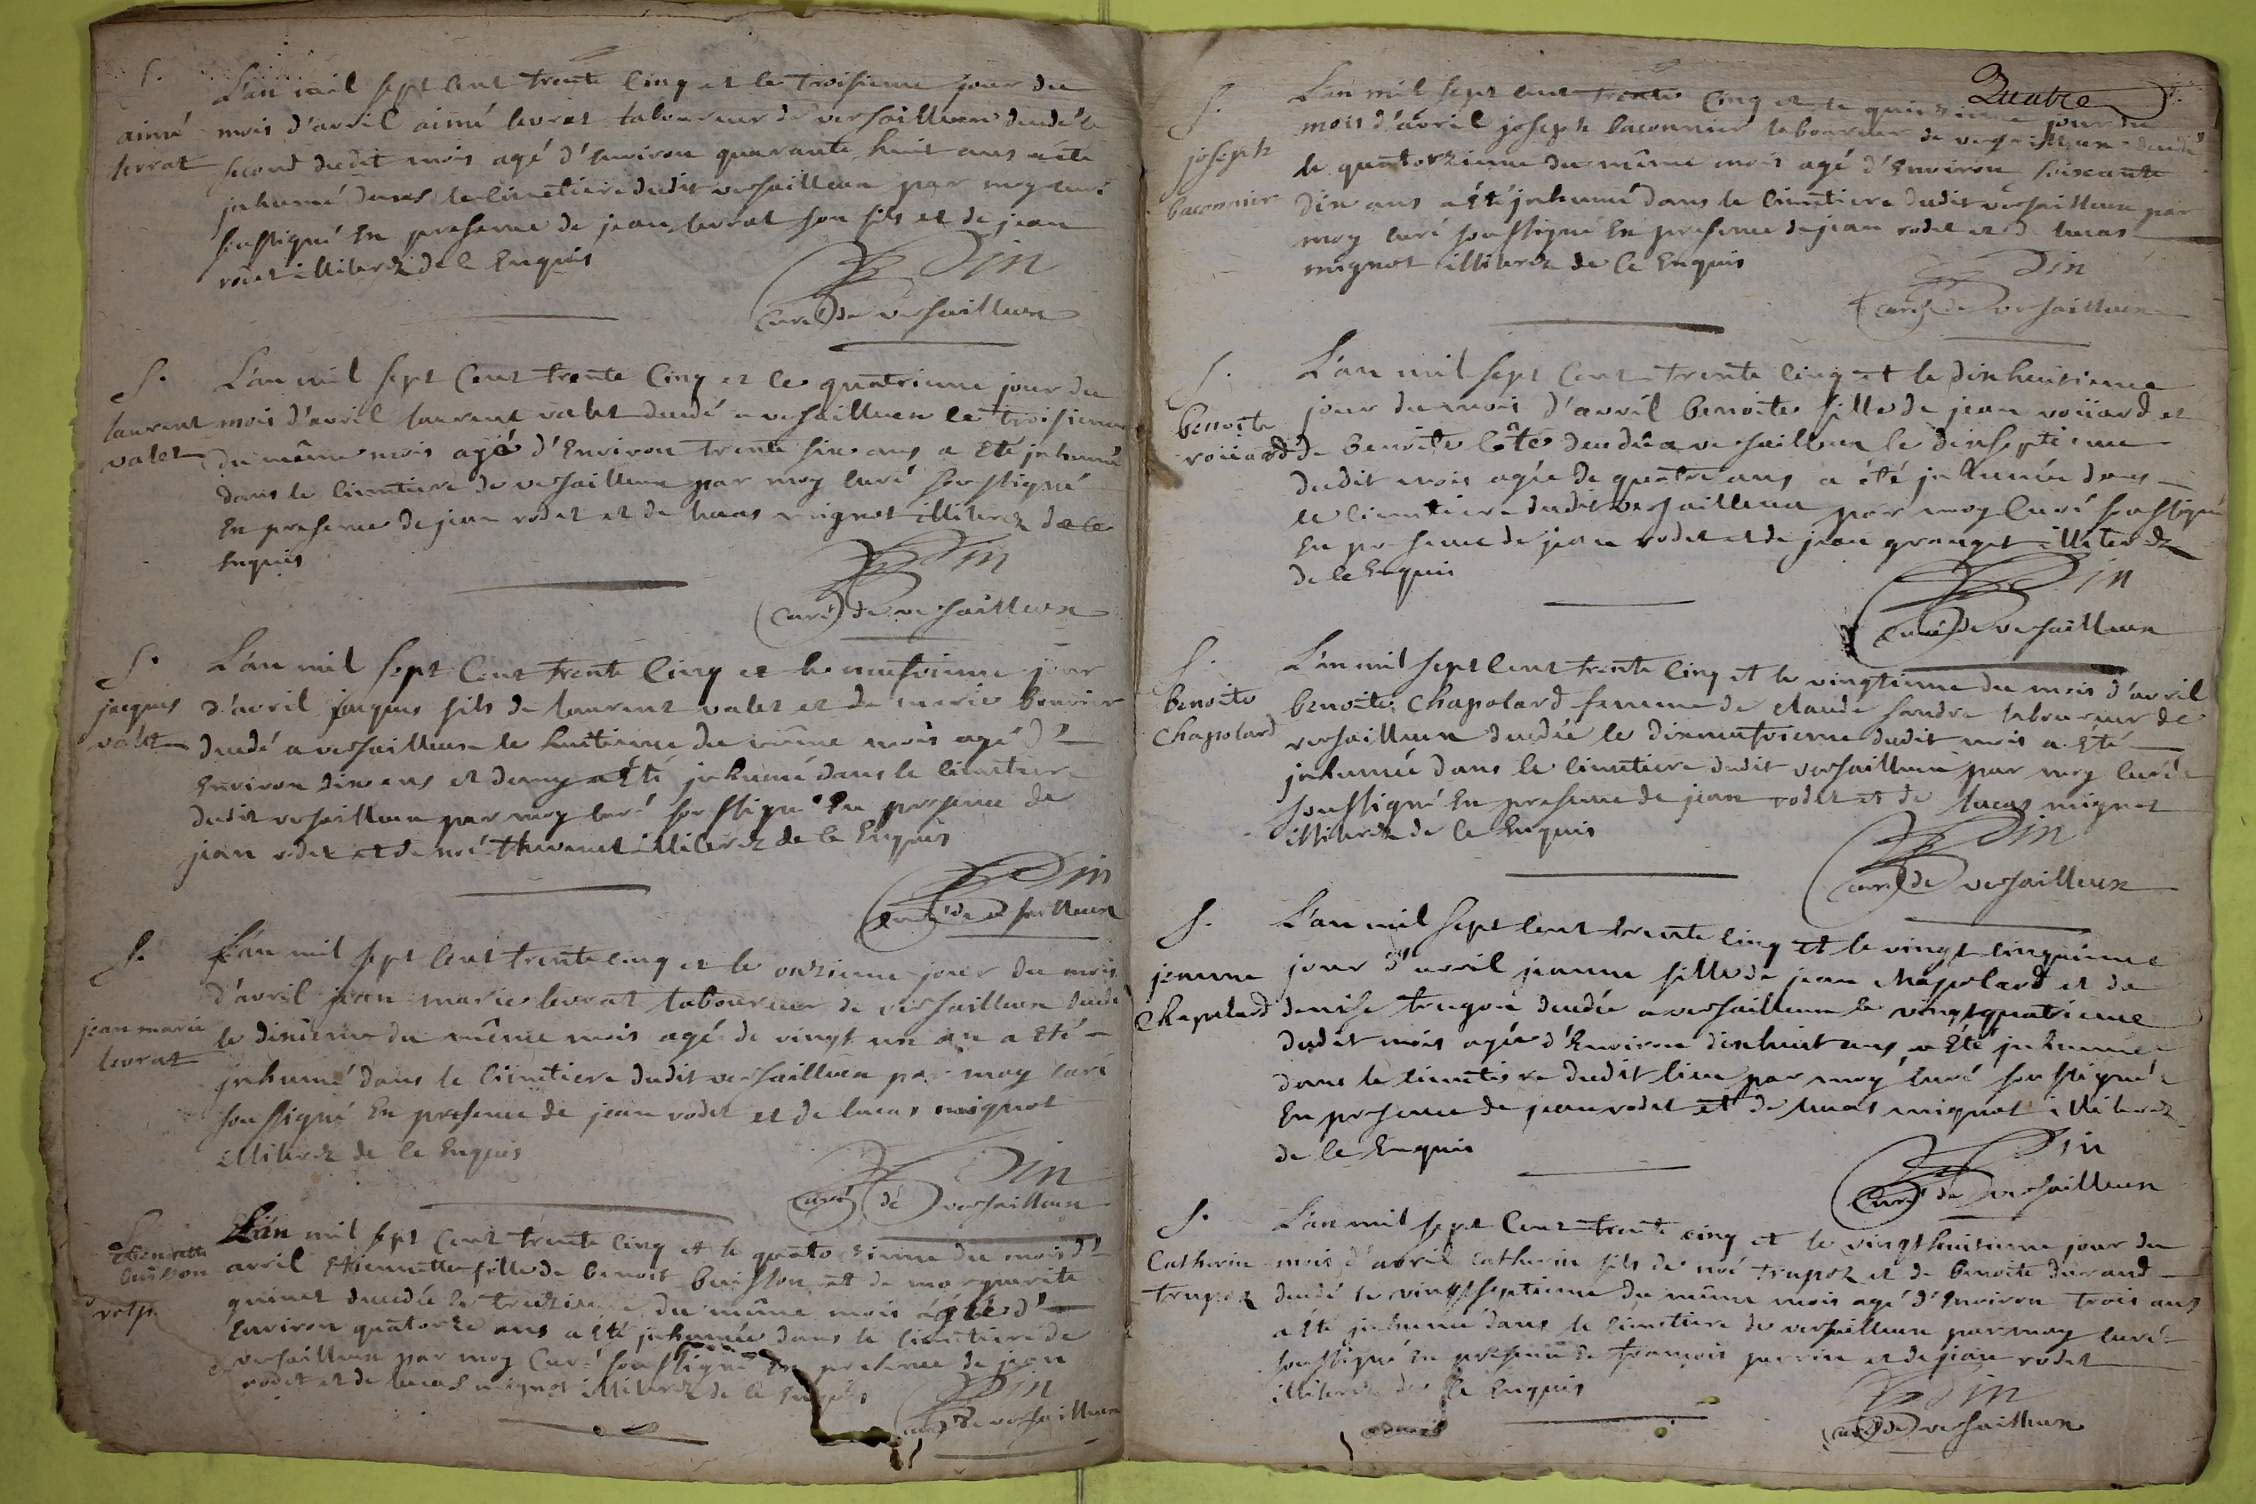 S.
aimé
levrat
L'an mil sept cent trente cinq et le troisieme jour du
mois d'avril aimé levrat laboureur de versailleux decedé le
second dudit mois agé d'environ quarante huit ans a été
inhumé dans le cimetiere dudit versailleux par moy curé
soussigné en presence de jean levrat son fils et de jean
rodet illiterez de ce enquis
Din
curé de versailleux
S.
laurent
valet
L'an mil sept cent trente cinq et le quatrieme jour du
mois d'avril laurent valet decedé a versailleux le troisieme
du même mois agé d'environ trente six ans a été inhumé
dans le cimetiere de versailleux par moy curé soussigné
en presence de jean rodet et de lucas mignot illiterez de ce
enquis
Din
curé de versailleux
S.
jacques
valet
L'an mil sept cent trente cinq et le neufvieme jour
d'avril jacques fils de laurent valet et de marie
decedé a versailleux le huitieme du même mois agé d'
environ dix ans et demy a été inhumé dans le cimetiere
dudit versailleux par moy curé soussigné en presence de
jean rodet et de noé thevenet illiterez de ce enquis
Din
curé de versailleux
S.
jean marie
levrat
L'an mil sept cent trente cinq et le onzieme jour du mois
d'avril jean marie levrat laboureur de versailleux decedé
le dixieme du même mois agé de vingt un an a été
inhumé dans le cimetiere dudit versailleux par moy curé
soussigné en presence de jean rodet et de lucas mignot
illiterez de ce enquis
Din
curé de versailleux
S.
buisson
L'an mil sept cent trente cinq et le quatorzieme du mois d'
avril etiennette fille de benoit buisson et de marguerite
quinet decedée le treizieme du même mois agée d'
environ quatorze ans a été inhumée dans le cimetiere de
versailleux par moy curé soussigné en presence de jean
rodet et de lucas mignot illiterez de ce enquis
Din
curé de versailleux
Quatre
S.
joseph
baconnier
L'an mil sept cent trente cinq et le quinzieme jour du
mois d'avril joseph baconnier laboureur de versailleux decedé
le quatorzieme du même mois agé d'environ soixante
dix ans a été inhumé dans le cimetiere dudit versailleux par
moy curé soussigné en presence de jean rodet et de lucas
mignot illiterez de ce enquis
Din
curé de versailleux
S.
benoite
roüard
L'an mil sept cent trente cinq et le dixhuitieme
jour du mois d'avril benoite fille de jean roüard et
de benoite côte decedée a versailleux le dixseptieme
dudit mois agée de quatre ans a été inhumée dans
le cimetiere dudit versailleux par moy curé soussigné
en presence de jean rodet et de jean granget illiterez
de ce enquis
Din
curé de versailleux
S.
benoite
chapolard
L'an mil sept cent trente cinq et le vingtieme du mois d'avril
benoite chapolard femme de claude sandre laboureur de
versailleux decedée le dixneufvieme dudit mois a été
inhumée dans le cimetiere dudit versailleux par moy curé
soussigné en presence de jean rodet et de lucas mignot
illiterez de ce enquis
Din
curé de versailleux
S.
jeanne
chapolard
L'an mil sept cent trente cinq et le vingt cinquieme
jour d'avril jeanne fille de jean chapolard et de
denise decedée a versailleux le vingtquatrieme
dudit mois agée d'environ dixhuit ans a été inhumée
dans le cimetiere dudit lieu par moy curé soussigné
en presence de jean rodet et de lucas mignot illiterez
de ce enquis
Din
curé de versailleux
S.
Catherin
trupoz
L'an mil sept cent trente cinq et le vingthuitieme jour du
mois d'avril catherin fils de noé trupoz et de benoite durand
decedé le vingtseptieme du même mois agé d'environ trois ans
a été inhumé dans le cimetiere de versailleux par moy curé
soussigné en presence de françois perrin et de jean rodet
illiterez de ce enquis
Din
curé de versailleux